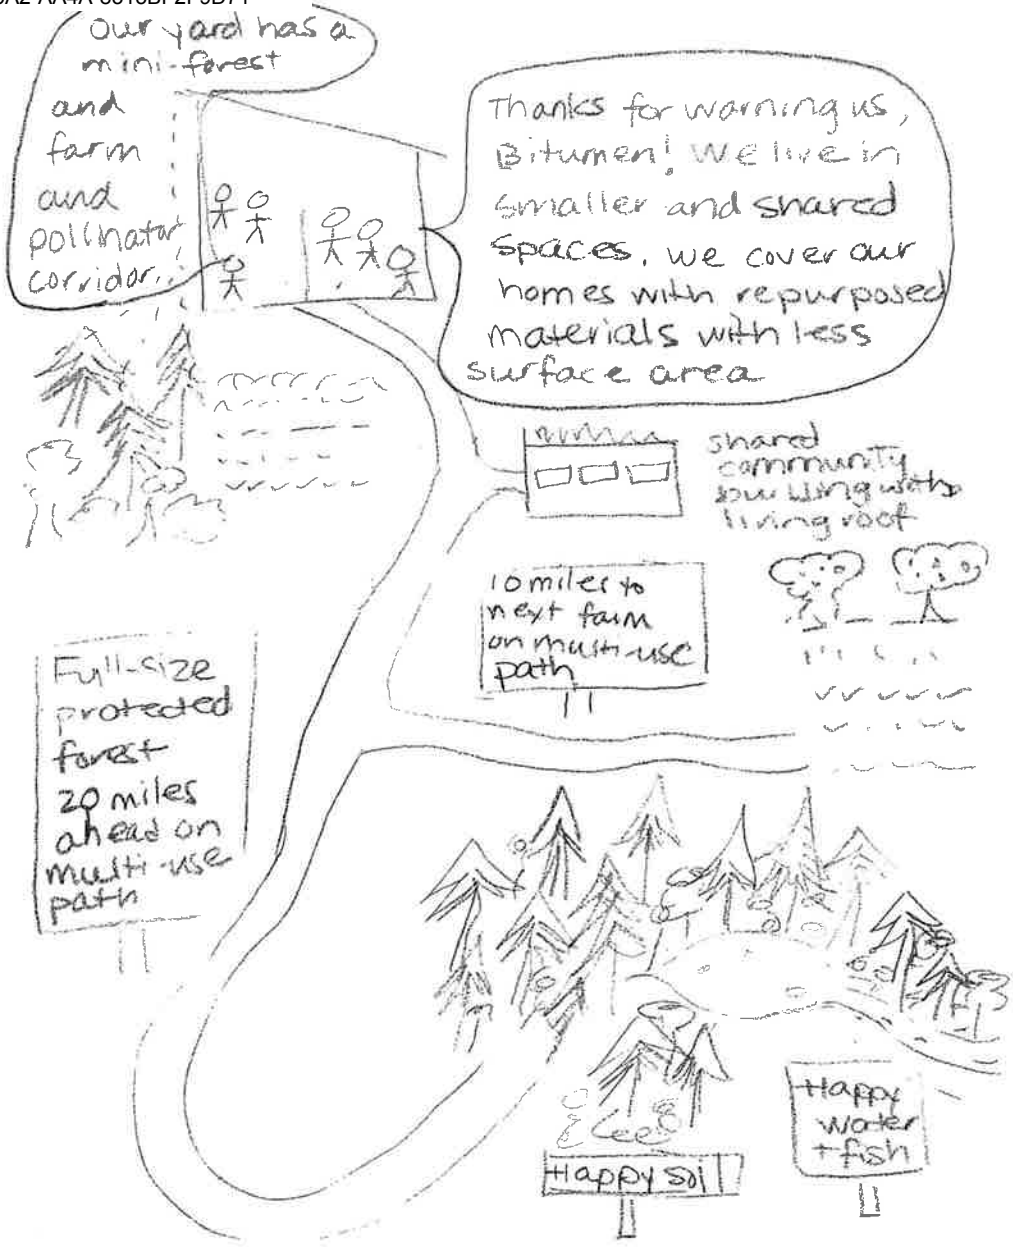 our yard has a
mini-forest
and
farm
and
pollinator
corridor..
Thanks for warning us,
Bitumen! We live in
smaller and shared
spaces. we cover our
homes with repurposed
materials with less
surface area
shared
community
building with
living roof
10 miles to
next farm
on multi-use
path
Full-size
protected
forest
20 miles
ahead on
multi-use
path
Happy
water
+ fish
Happy soil